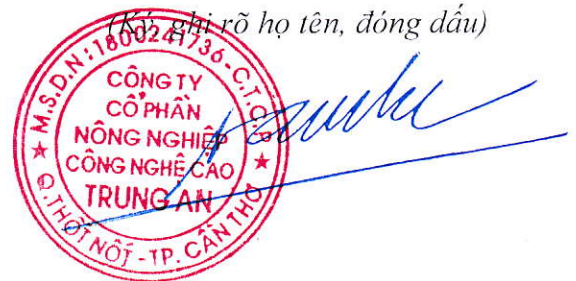 (Ký, ghi rõ họ tên, đóng dấu)
M.S.D.N: 1800241736-C.T.C.P
CÔNG TY
CỔ PHẦN
NÔNG NGHIỆP
CÔNG NGHỆ CAO
TRUNG AN
Q.THỐT NỐT - TP. CẦN THƠ